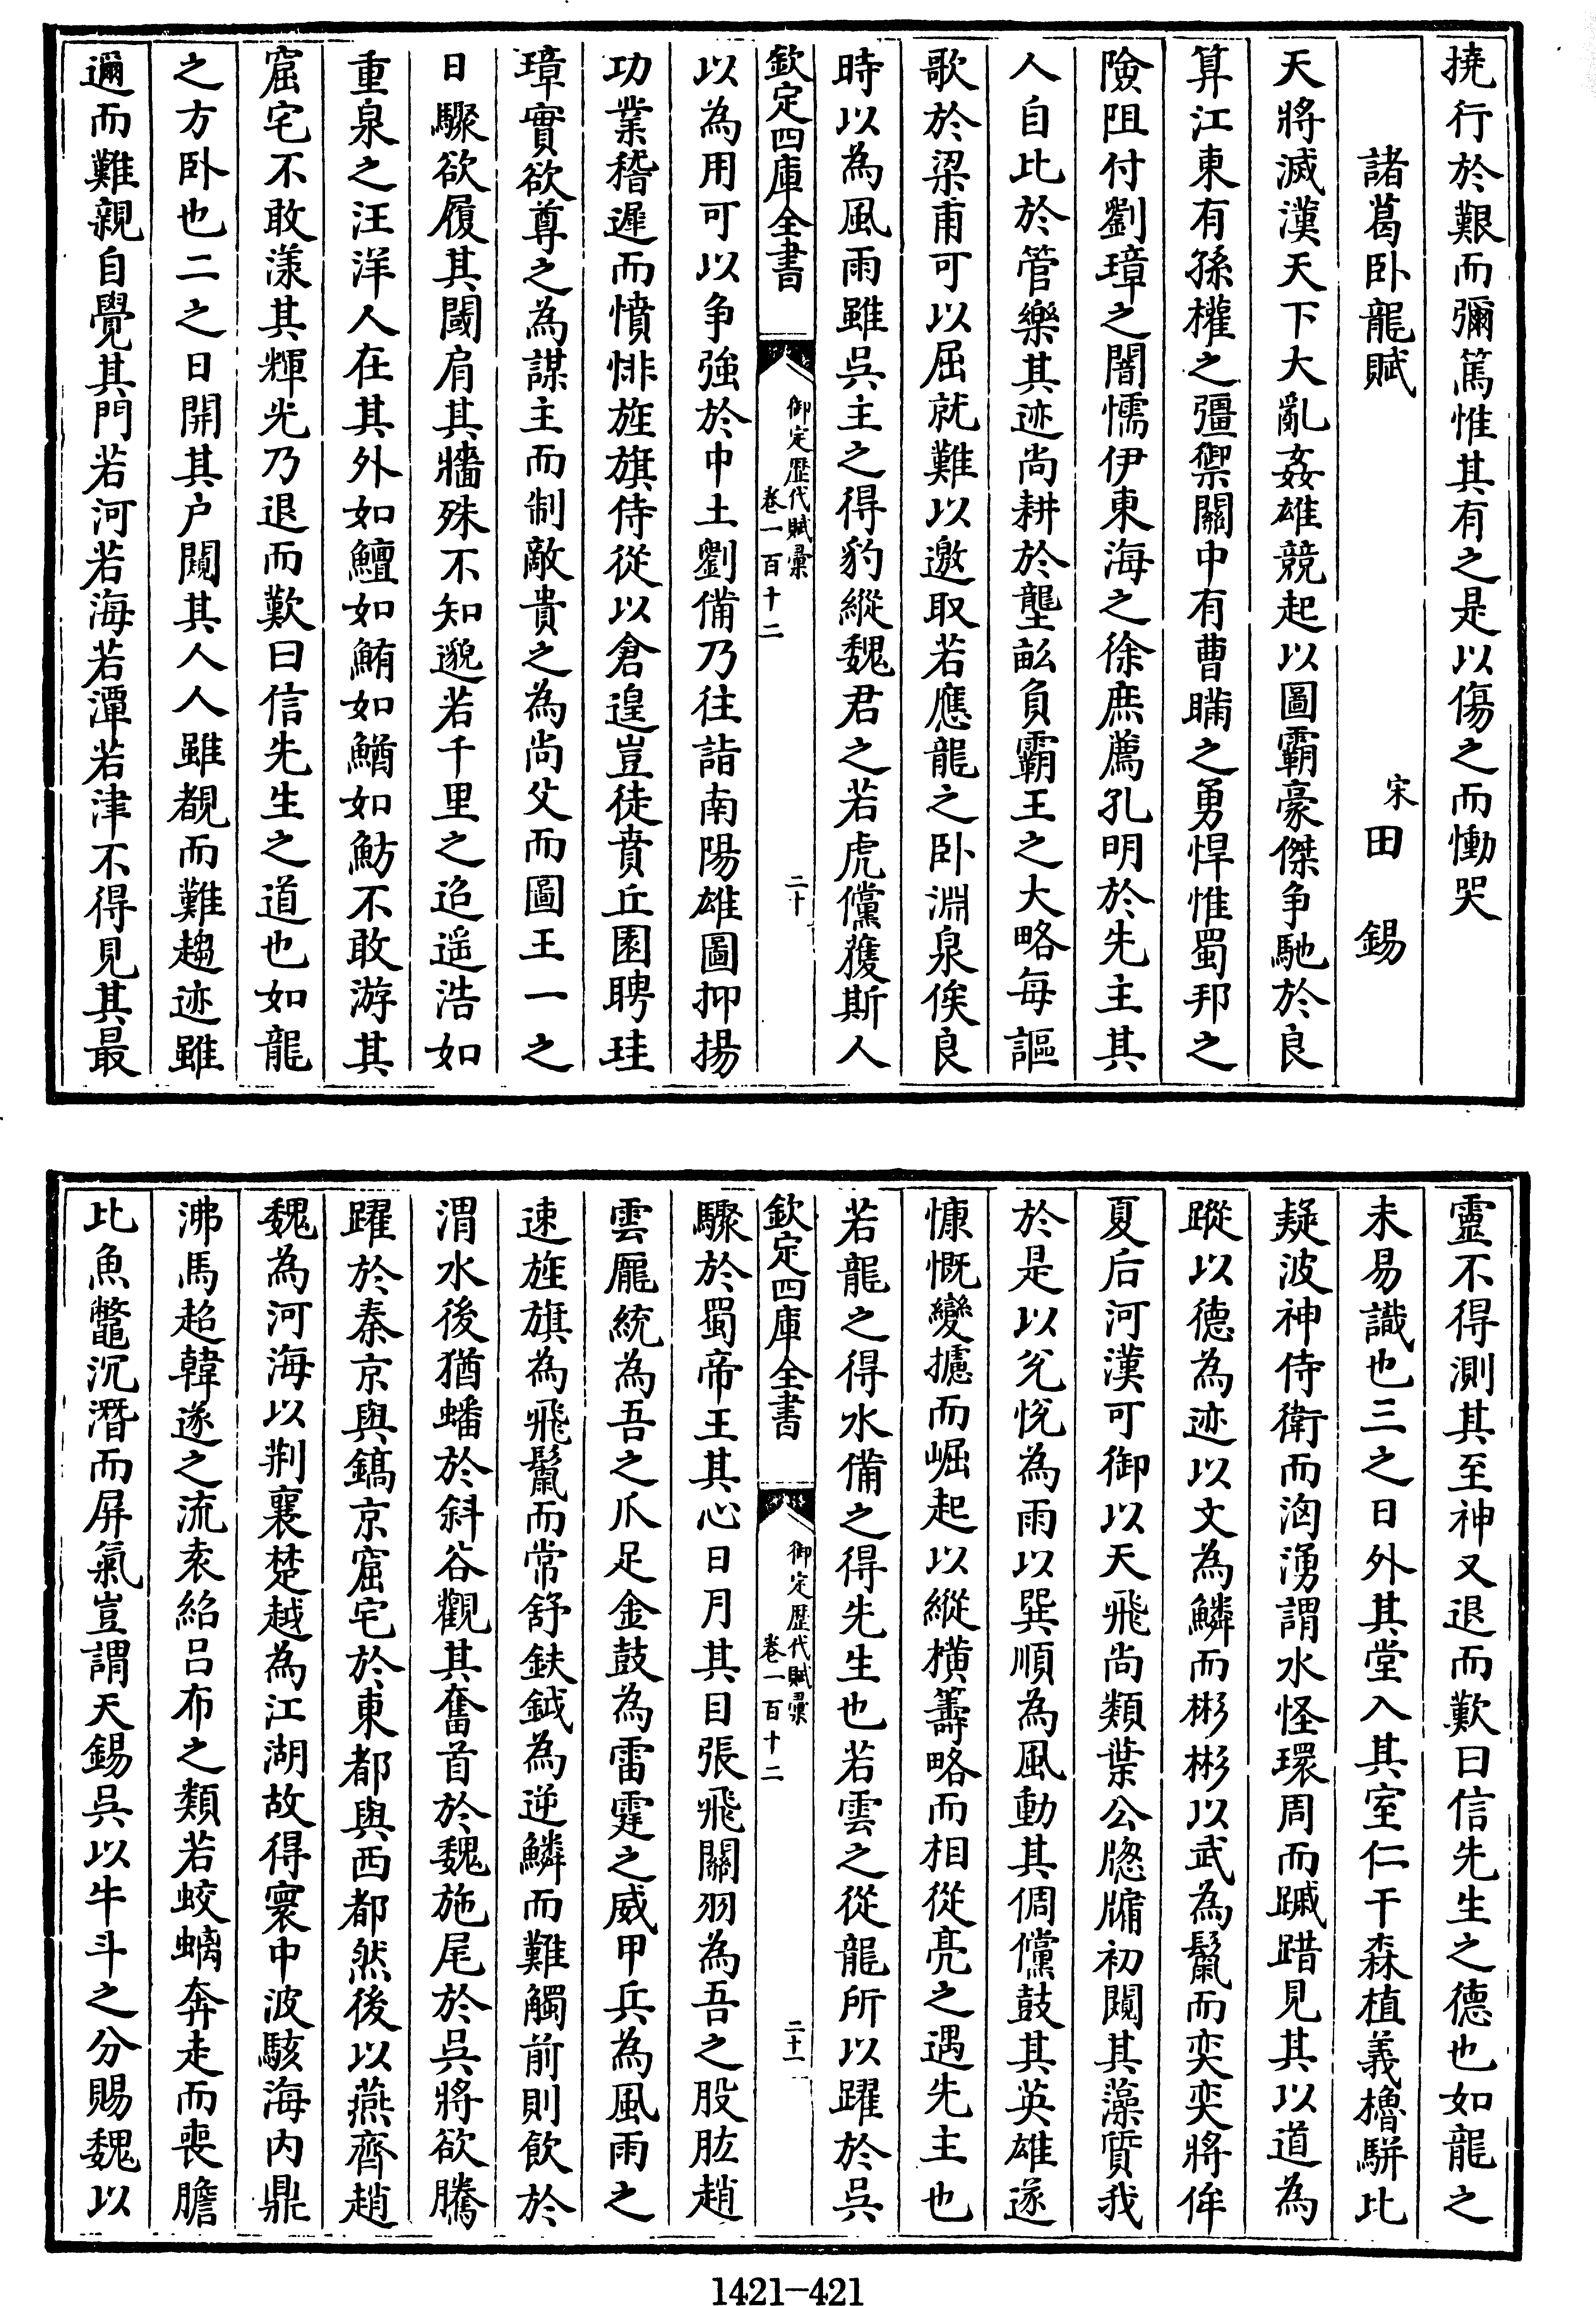 撓行於艱而彌篤惟其有之是以傷之而慟哭
諸葛卧龍賦
宋田 錫
天將滅漢天下大亂姦雄競起以圖霸豪傑争馳於良
算江東有孫權之彊禦關中有曹瞞之勇悍惟蜀邦之
險阻付劉璋之闇懦伊東海之徐庶薦孔明於先主其
人自比於管樂其迹尚耕於壟畝負霸王之大略每謳
歌於梁甫可以屈就難以邀取若應龍之卧淵泉俟良
時以為風雨雖呉主之得豹縱魏君之若虎儻獲斯人
欽定四庫全書
御定歴代賦彚
卷一百十二
二十
以為用可以争強於中土劉備乃往詣南陽雄圖抑揚
功業稽遲而憤悱旌旗侍從以倉遑豈徒賁丘園聘珪
璋實欲尊之為謀主而制敵貴之為尚父而圖王一之
日驟欲履其閾肩其牆殊不知邈若千里之迢遥浩如
重泉之汪洋人在其外如鱣如鮪如鰌如魴不敢游其
窟宅不敢漾其輝光乃退而歎曰信先生之道也如龍
之方卧也二之日開其户闚其人人雖覩而難趨迹雖
邇而難親自覺其門若河若海若潭若津不得見其最
靈不得測其至神又退而歎曰信先生之德也如龍之
未易識也三之日外其堂入其室仁干森植義櫓駢比
疑波神侍衛而洶湧謂水怪環周而蹴踖見其以道為
蹤以德為迹以文為鱗而彬彬以武為鬣而奕奕將侔
夏后河漢可御以天飛尚類葉公牎牖初闚其藻質我
於是以兊悦為雨以巽順為風動其倜儻鼓其英雄遂
慷慨變攄而崛起以縱横籌略而相從亮之遇先主也
若龍之得水備之得先生也若雲之從龍所以躍於呉
欽定四庫全書
御定歴代賦彚
卷一百十二
二十一
驟於蜀帝王其心日月其目張飛關羽為吾之股肱趙
雲龎統為吾之爪足金鼓為雷霆之威甲兵為風雨之
速旌旗為飛鬣而常舒鈇鉞為逆鱗而難觸前則飲於
渭水後猶蟠於斜谷觀其奮首於魏施尾於呉將欲騰
躍於秦京與鎬京窟宅於東都與西都然後以燕齊趙
魏為河海以荆襄楚越為江湖故得寰中波駭海内鼎
沸馬超韓遂之流袁紹吕布之類若蛟螭奔走而喪膽
比魚鼈沉潛而屏氣豈謂天錫呉以牛斗之分賜魏以
1421-421